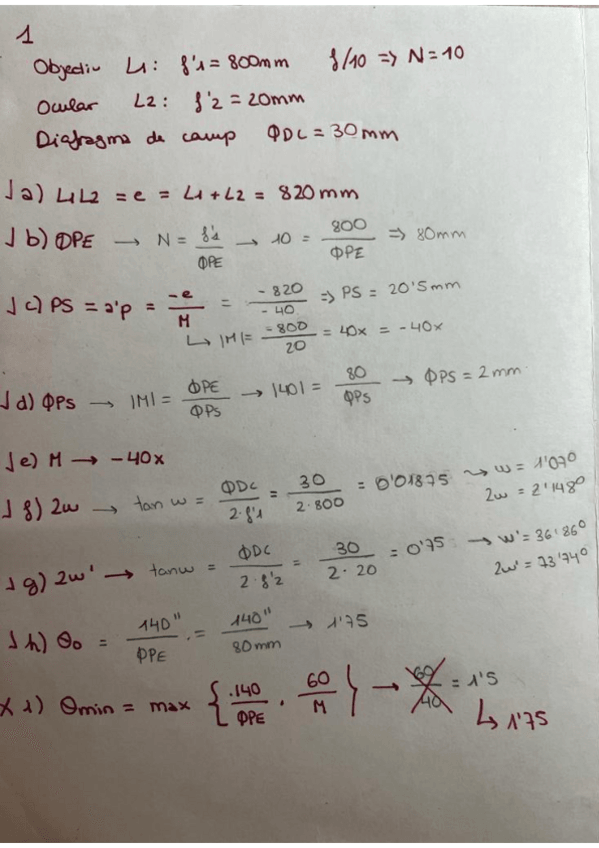 1
Objectiu L1: f'1 = 800mm f/10 => N = 10
Ocular L2: f'2 = 20mm
Diafragma de camp ΦDC = 30mm
↓ a) L1L2 = e = L1 + L2 = 820mm
↓ b) ΦPE → N = f'1/ΦPE → 10 = 800/ΦPE => 80mm
↓ c) PS = a'p = -e/M = -820/-40 => PS = 20'5mm
↳ |M| = -800/20 = 40x = -40x
↓ d) ΦPS → |M| = ΦPE/ΦPS → |40| = 80/ΦPS → ΦPS = 2mm
↓ e) M → -40x
↓ f) 2w → tan w = ΦDC/2·f'1 = 30/2·800 = 0'01875 → w = 1'07º
2w = 2'148º
↓ g) 2w' → tanw = ΦDC/2·f'2 = 30/2·20 = 0'75 → w' = 36'86º
2w' = 73'74º
↓ h) θo = 140"/ΦPE = 140"/80mm → 1'75
x i) θmin = max {140/ΦPE · 60/M} → 60/40 = 1'5
↳ 1'75